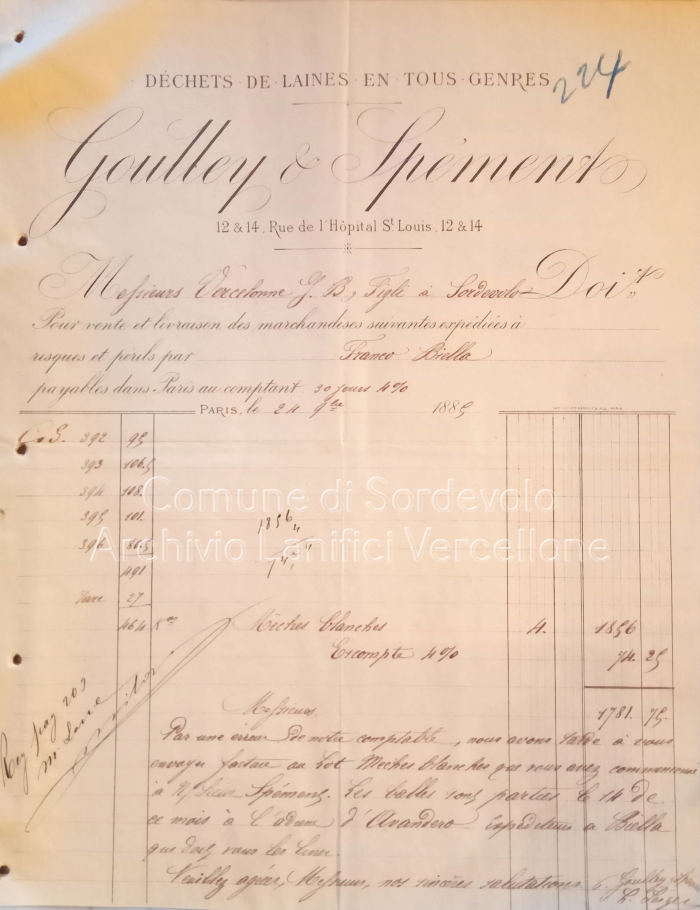 DÉCHETS · DE · LAINES · EN · TOUS · GENRES
224
Goulley & Spément
12 & 14, Rue de l'Hôpital St Louis, 12 & 14
Messieurs Vercelonne J. B, Figli à Sordevolo Doiᵗ
Pour vente et livraison des marchandises suivantes expédiées à
risques et périls par Franco Biella
payables dans Paris au comptant 30 jours 4%
PARIS, le 24 9bre 1885
392 95
393 106.5
394 108.
395 101.
Comune di Sordevolo
Archivio Lanifici Vercellone
1856 "
491
Tare 27
464 Kos Mèches blanches 4. 1856
Escompte 4% 74. 25
1781. 75
Reg pag 203
Messieurs,
Par une erreur de notre comptable, nous avons tardé à vous
envoyer facture au Lot Mèches blanches que vous avez
à Spément. Les balles sont parties le 14 de
ce mois à l'adresse d'Avandero expéditeur à Biella
que doit vous les
Veuillez agréer, Messieurs, nos sincères salutations
Goulley